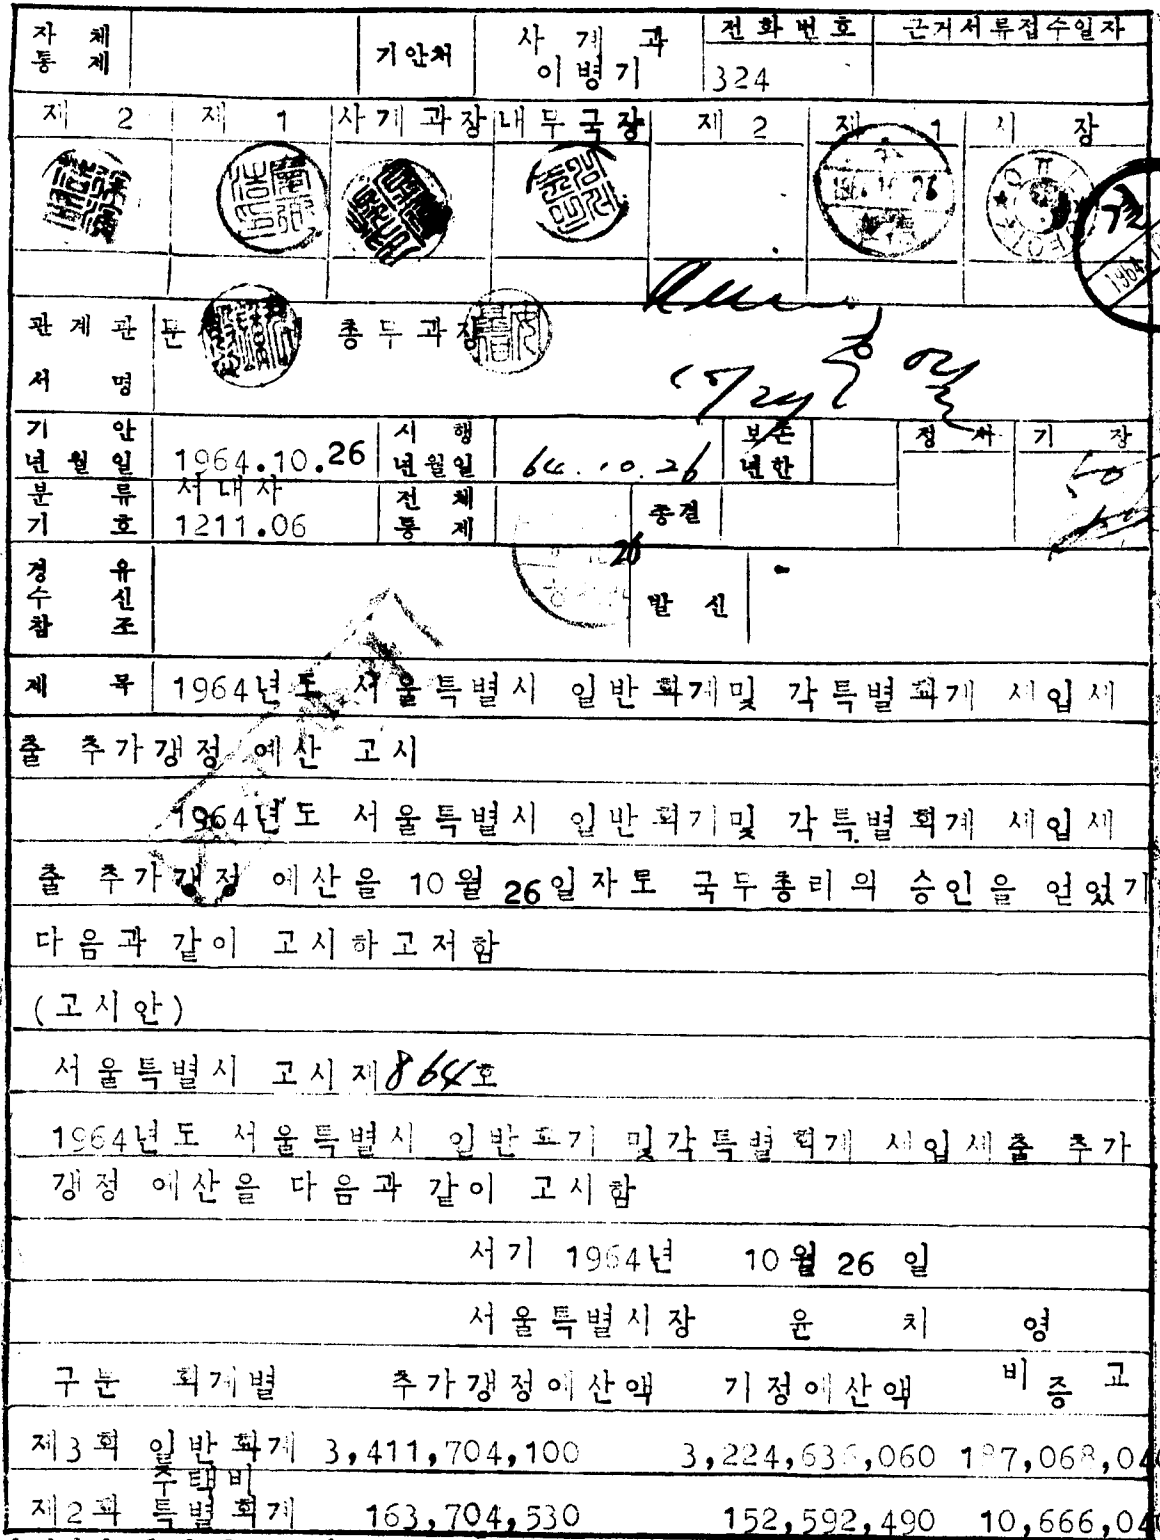 자 체 통 제 기안처 사 계 과 이병기 전화번호 324 근거서류접수일자
제 2 제 1 사계과장 내무국장 제 2 제 1 시 장
관계관 서 명 문 총무과장
기 안 년월일 1964.10.26 시 행 년월일 64.10.26 보존 년한 정 서 기 장
분 류 기 호 서내사 1211.06 전 체 통 제 종결
경 유 수 신 참 조 발 신
제 목 1964년도 서울특별시 일반회계및 각특별회계 세입세
출 추가갱정 예산 고시
1964년도 서울특별시 일반회기및 각특별회계 세입세
출 추가갱정 예산을 10월 26일자로 국무총리의 승인을 얻었기
다음과 같이 고시하고저함
(고시안)
서울특별시 고시제864호
1964년도 서울특별시 일반회기 및각특별회계 세입세출 추가
갱정 예산을 다음과 같이 고시함
서기 1964년 10월 26 일
서울특별시장 윤 치 영
구분 회계별 추가갱정예산액 기정예산액 비 증 고
제3회 일반회계 3,411,704,100 3,224,636,060 187,068,04
주택비
제2회 특별회계 163,704,530 152,592,490 10,666,04